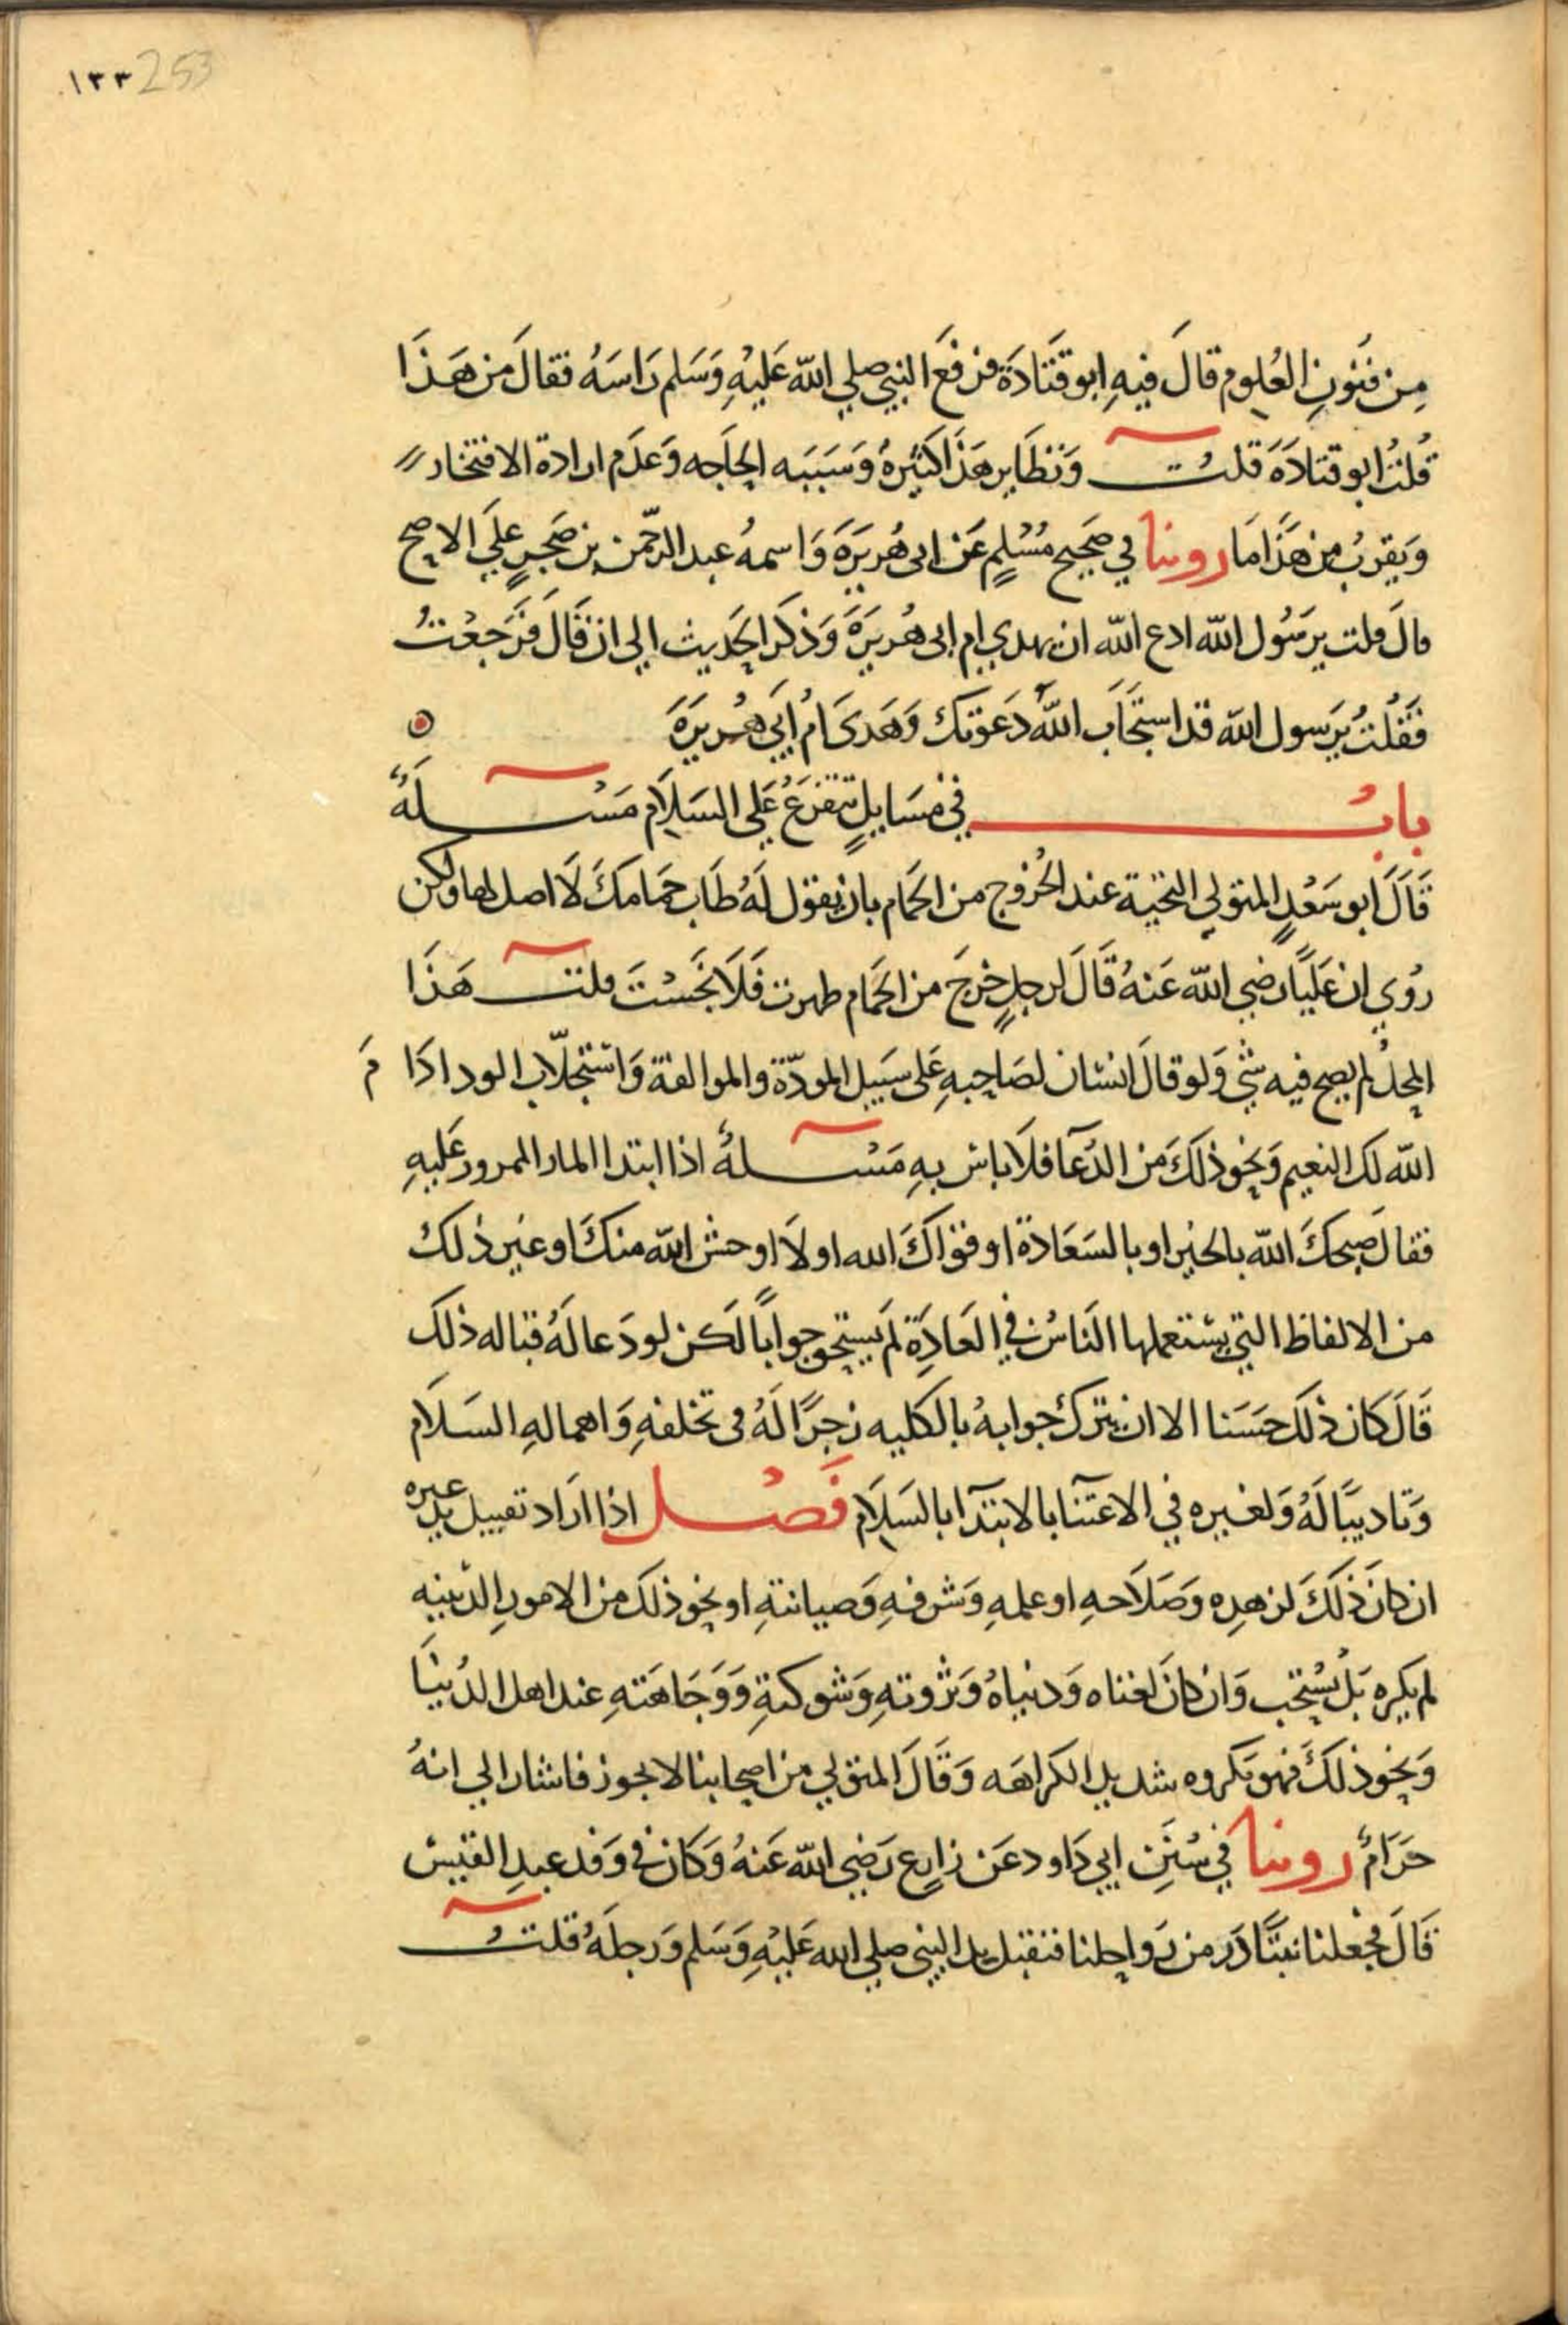 ١٣٣ 253
مِن فنُونِ العُلوم قالَ فيهِ ابو قتَادَة فرفَع النبي صلي الله عَليْهِ وَسَلم رَاسَهُ فقالَ مَن هَذَا
قُلتُ ابو قتادَة قلت وَنظَاير هَذا كثيرةٌ وَسَببه الحاجه وَعدَم ارادة الافتخار
وَيقربُ من هَذا مَا روينا في صَحيح مُسْلمٍ عَن ابى هُريرَة وَاسمهُ عبد الرحمن بن صَخرٍ علَي الاصح
قالَ قلت يرسُول الله ادع الله ان يهدي ام ابى هُريرَة وَذكَر الحَديث الي ان قالَ فرَجعْتُ
فقُلتُ يرَسول الله قد استجَابَ اللهُ دَعوتك وَهَدى امُ ابَي هُريرَة
بابُ في مسَايلٍ تتفرعُ عَلي السَلام مَسْلَةٌ
قالَ ابو سَعْدٍ المتولي التحية عند الخُروج من الحَمام بان يقول لهُ طَابَ حمَامكَ لَا اصل لها ولكن
رُوي ان عَليًا رضي الله عَنهُ قالَ لرجلٍ خرجَ من الحَمام طهرت فَلَا نَجسْتَ قلت هَذَا
المحل لم يصح فيه شي وَلو قالَ انسَان لصَاحبهِ عَلى سَبيل المودّة والموالفة وَاستجلَاب الود ادَا مَ
الله لك النعيم وَنحو ذلكَ مَن الدُعآ فلَا باس بهِ مَسْلةٌ اذا ابتدا المار الممرور عَليهِ
فقالَ صبحكَ الله بالخير او بالسَعَادة او قواكَ الله او لَا اوحش الله منكَ او غير ذلك
من الالفاظ التي يستعملها النَاسُ في العَادَة لم يستحق جوابًا لكن لو دَعا لَهُ قباله ذلك
قَالَ كان ذلك حسَنا الا ان يترك جوابهُ بالكليه زجرًا لَهُ فى تخلفهِ وَاهمالهِ السَلام
وَتاديبًا لَهُ وَلغيره في الاعتنَا بالابتدَا بالسَلَام فَصْل اذا ارَاد تقبيل يد غيره
ان كانَ ذَلكَ لزهدِه وَصَلَاحهِ او علمهِ وَشرفهِ وَصيانتهِ او نحو ذلكَ من الامورِ الدينيه
لم يكره بَل يُستحب وَان كانَ لغناه وَدنياهُ وَثروتهِ وَشوكتهِ وَوَجَاهَتهِ عند اهل الدُنيَا
وَنحو ذلكَ فهوَ مكروه شديد الكراهَه وَقالَ المتولي من اصحابنا لا يجوز فاشار الي انهُ
حَرَامٌ روينا في سُنَنِ ابي دَاود عَن زارِعٍ رَضي الله عَنهُ وَكانَ في وَفد عبدِ القيس
قَالَ فجعلنا نتبَادَر من رَواحلنا فنقبل يد النبي صلي الله عَليْهِ وَسَلم وَرجلَهُ قلت